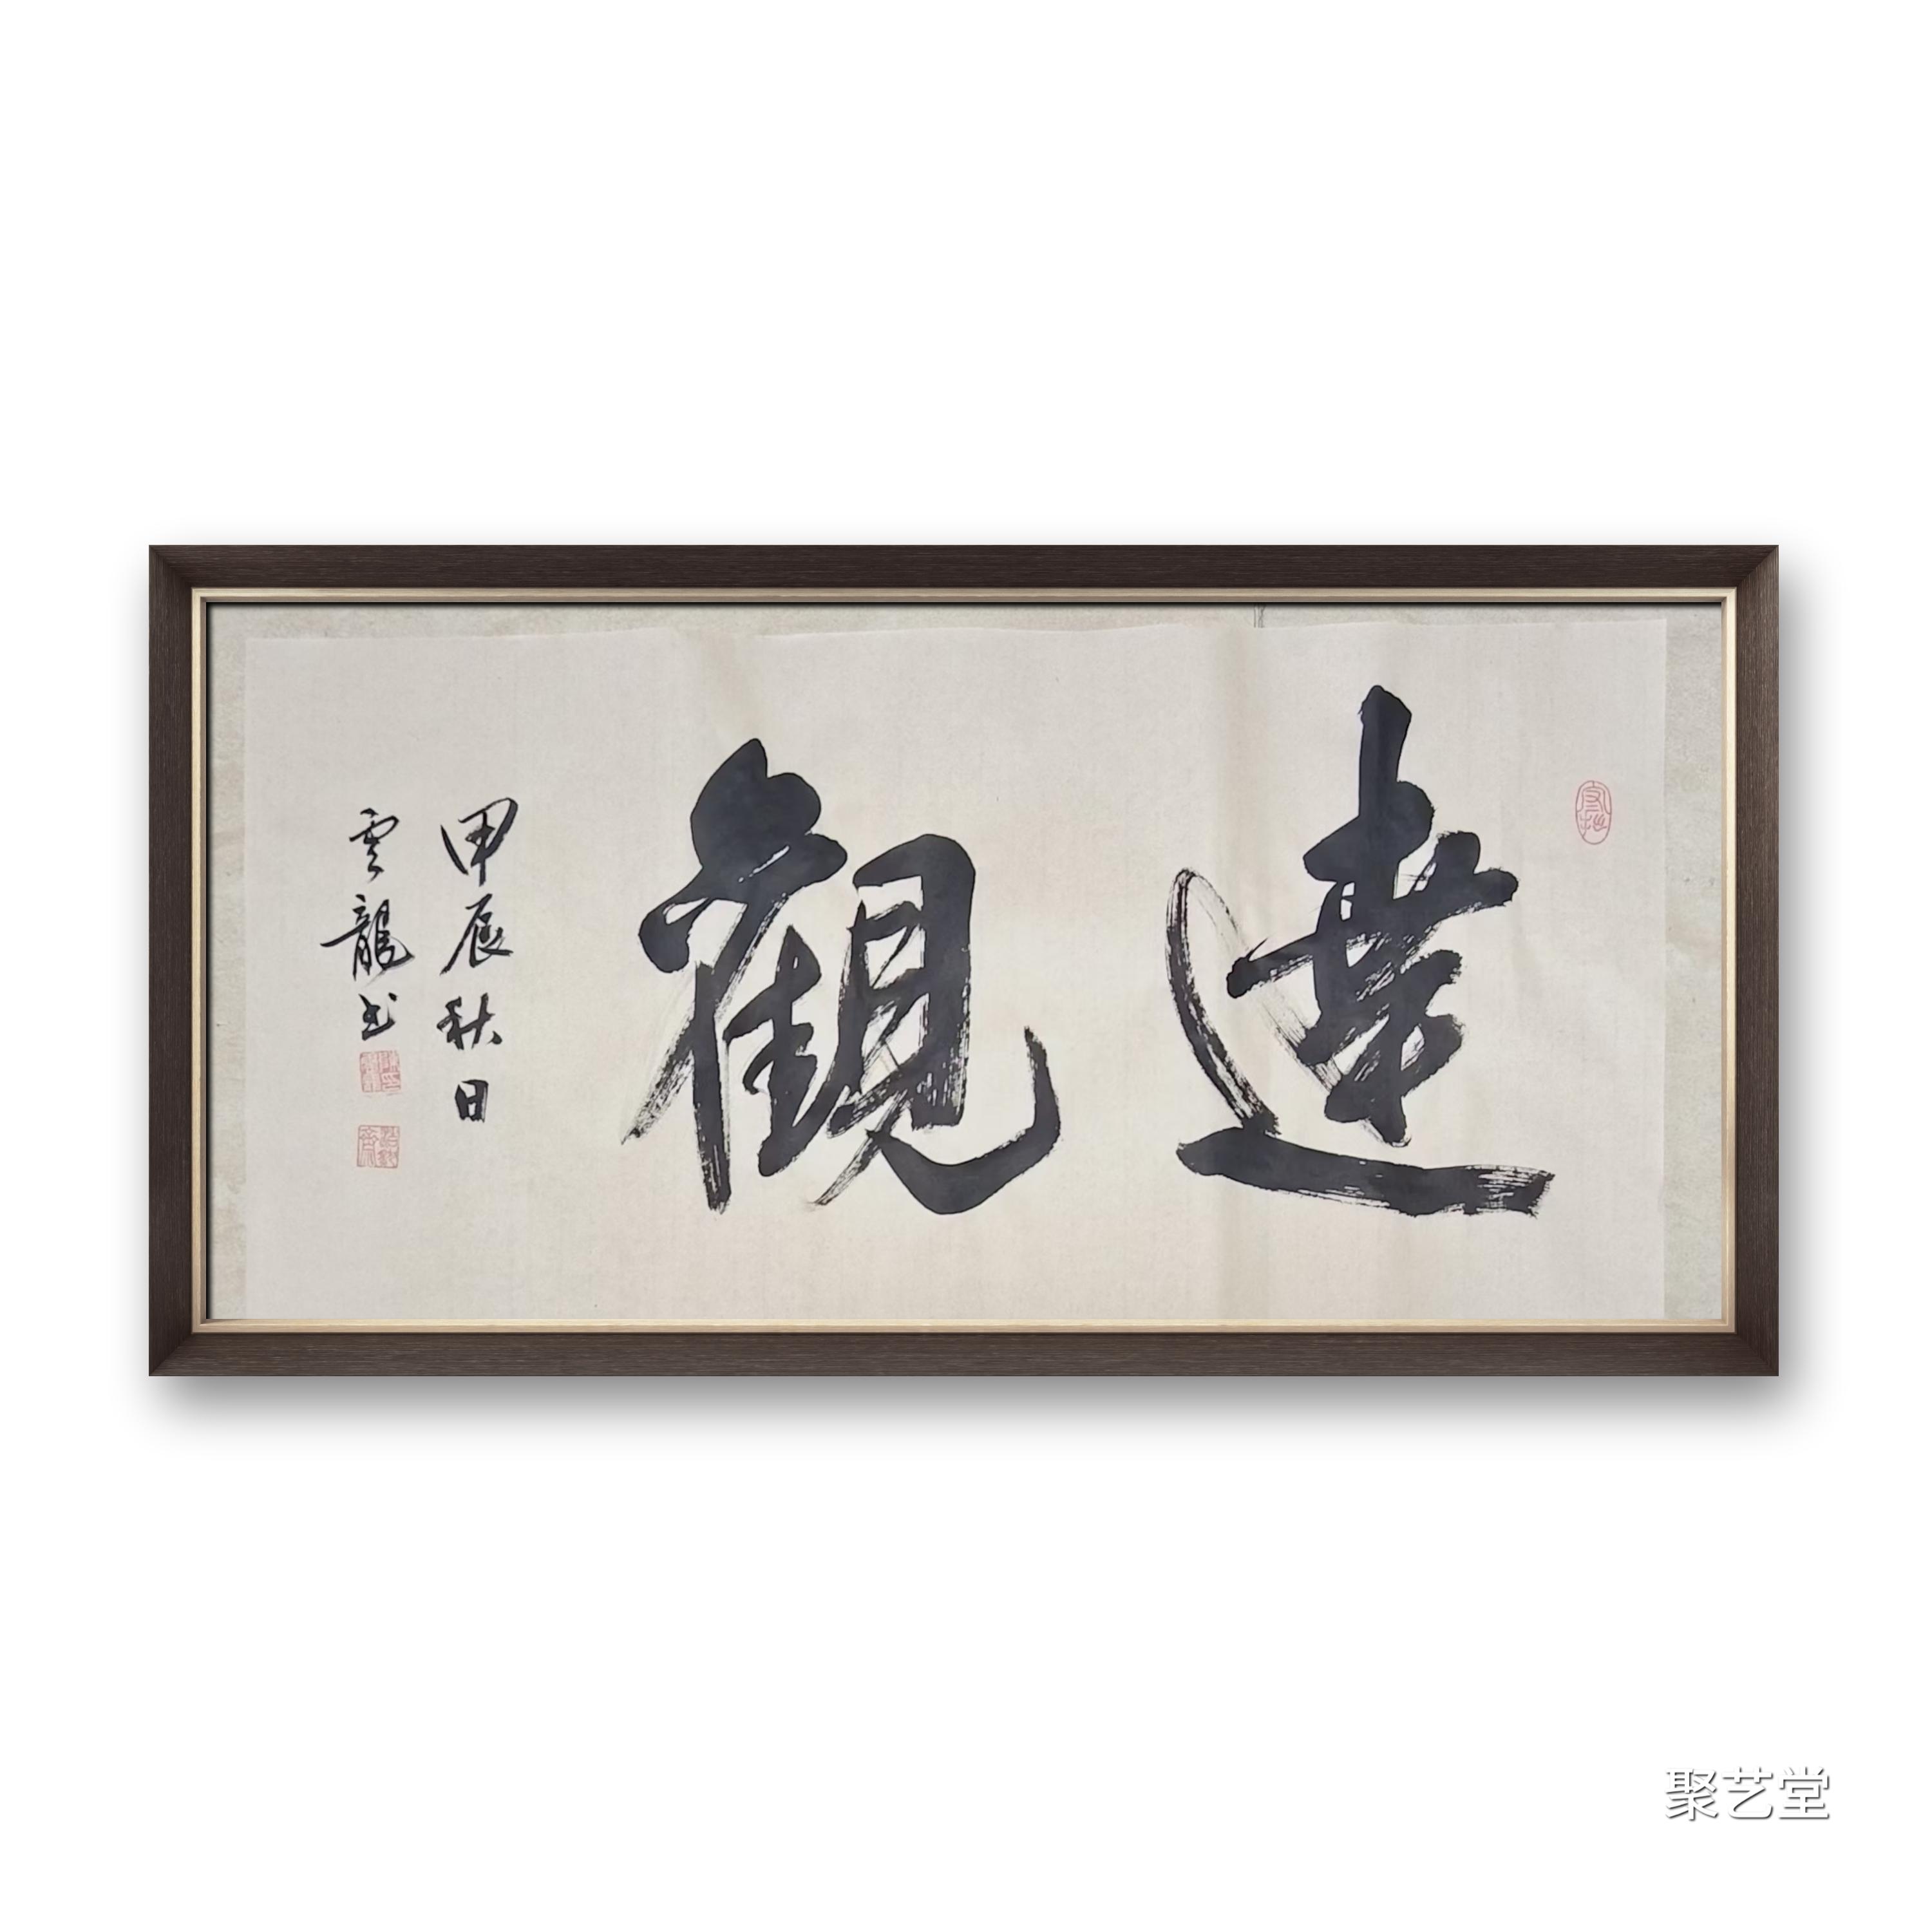 達觀
甲辰秋日
雲龍书
聚艺堂